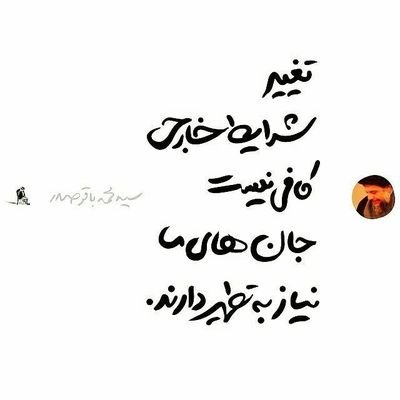 تغییر
شرایط خارجی
کافی نیست
جان های ما
نیاز به تطهیر دارند.
سید محمد باقر صدر